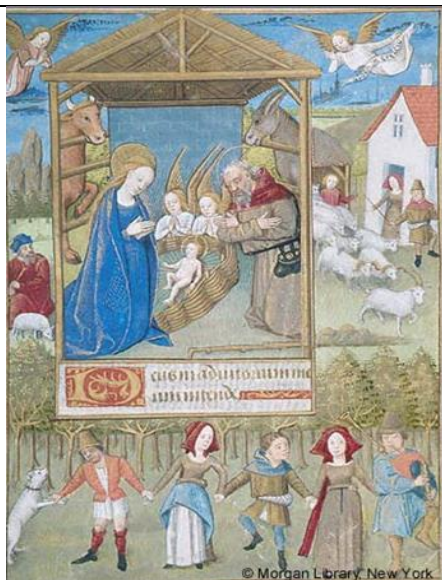 Deus in adiutorium me
um intende
© Morgan Library, New York